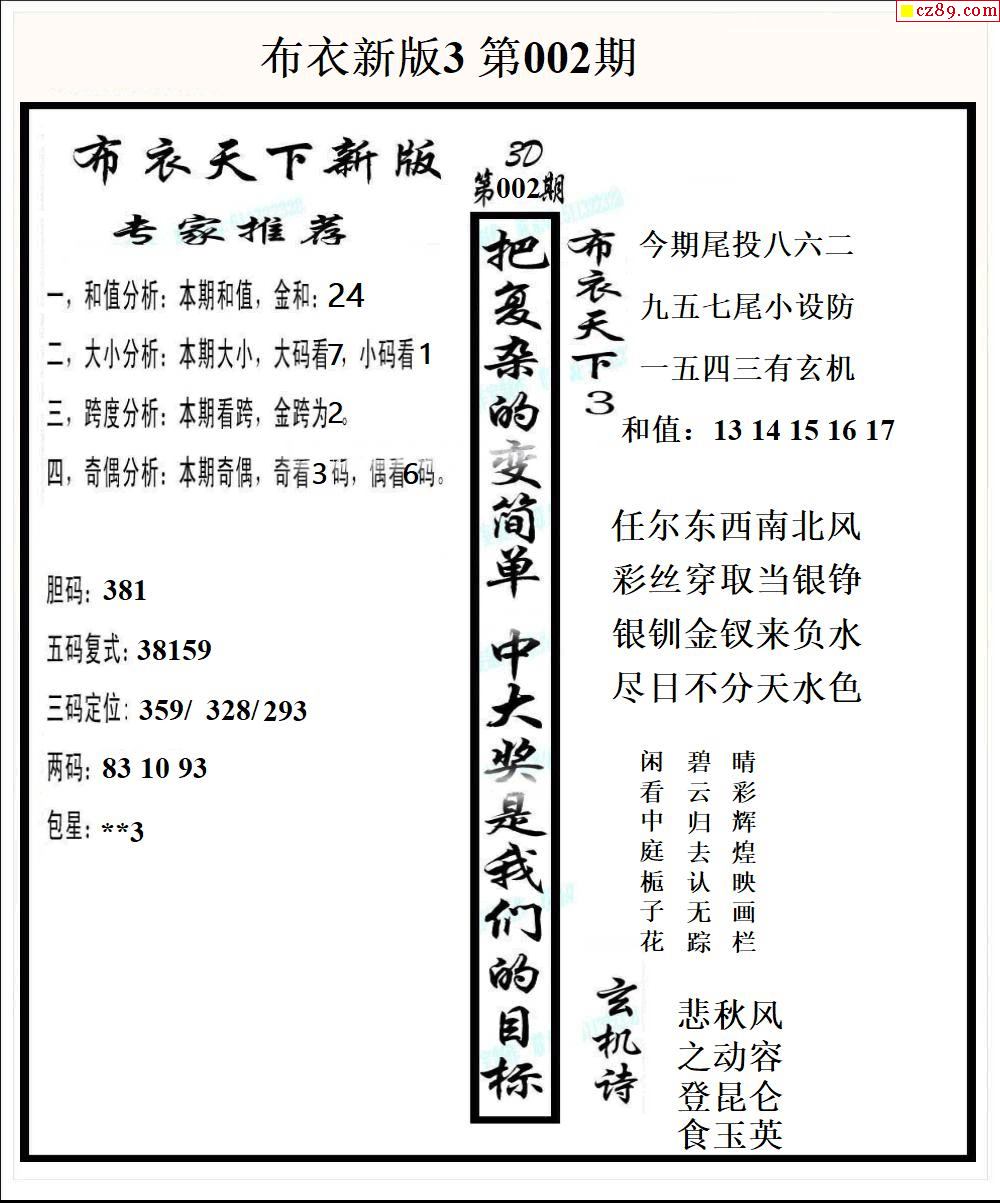 cz89.com
布衣新版3 第002期
布衣天下新版
专家推荐
一，和值分析：本期和值，金和：24
二，大小分析：本期大小，大码看7，小码看1
三，跨度分析：本期看跨，金跨为2。
四，奇偶分析：本期奇偶，奇看3码，偶看6码。
胆码：381
五码复式：38159
三码定位：359/ 328/ 293
两码：83 10 93
包星：**3
3D
第002期
把复杂的变简单 中大奖是我们的目标
布衣天下3
今期尾投八六二
九五七尾小设防
一五四三有玄机
和值：13 14 15 16 17
任尔东西南北风
彩丝穿取当银铮
银钏金钗来负水
尽日不分天水色
晴彩辉煌映画栏
碧云归去认无踪
闲看中庭栀子花
玄机诗
悲秋风
之动容
登昆仑
食玉英